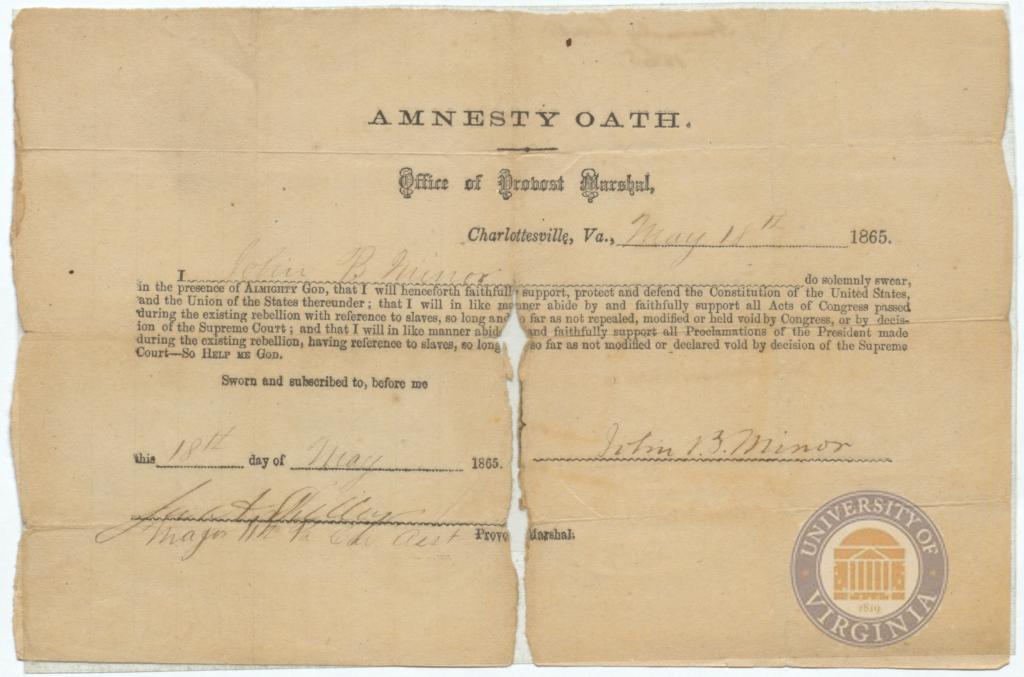 AMNESTY OATH.
Office of Provost Marshal,
Charlottesville, Va., May 18th 1865.
I John B Minor do solemnly swear,
in the presence of ALMIGHTY GOD, that I will henceforth faithfull support, protect and defend the Constitution of the United States,
and the Union of the States thereunder; that I will in like manner abide by and faithfully support all Acts of Congress passed
during the existing rebellion with reference to slaves, so long and so far as not repealed, modified or held void by Congress, or by decis-
ion of the Supreme Court; and that I will in like manner abid and faithfully support all Proclamations of the President made
during the existing rebellion, having reference to slaves, so long so far as not modified or declared void by decision of the Supreme
Court—So HELP ME GOD.
Sworn and subscribed to, before me
this 18th day of May 1865.
John B. Minor
Major 11th Pa Cav Asst Provo Marshal.
UNIVERSITY OF VIRGINIA
1819